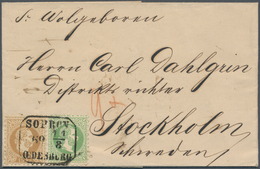 Sr. Wolgeboren
Herrn Carl Dahlgrin
Distrikts richter
Stockholm
Schweden
SOPRON
11
69 8
OEDENBURG